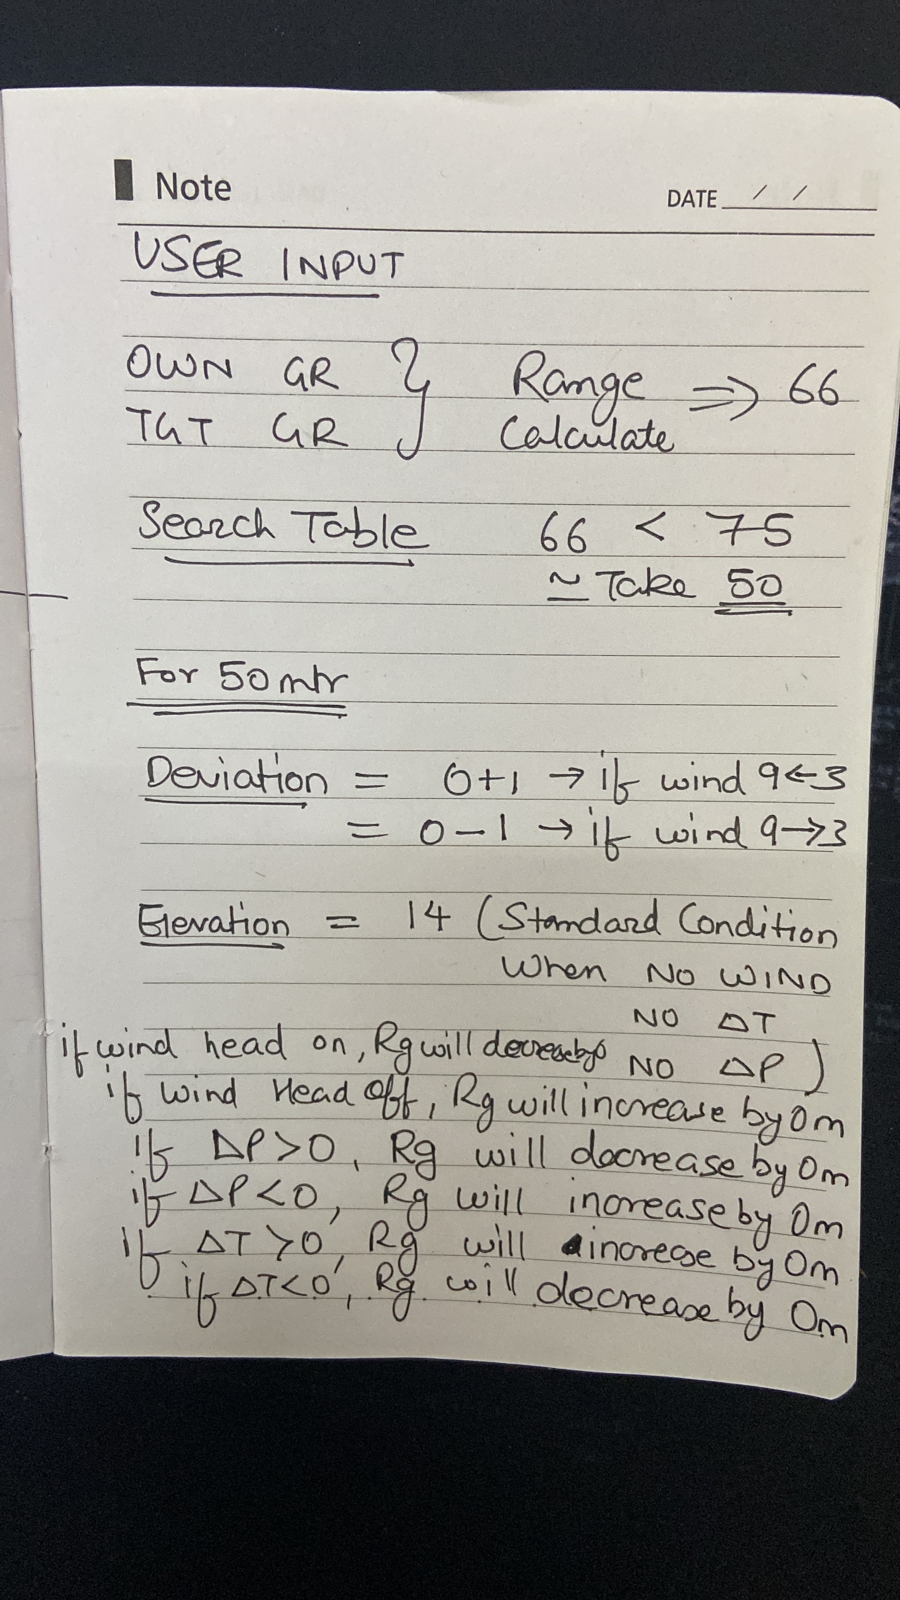 Note
DATE / /
USER INPUT
OWN GR } Range ⇒ 66
TGT GR Calculate
Search Table 66 < 75
≃ Take 50
For 50 mtr
Deviation = 0+1 → if wind 9←3
= 0-1 → if wind 9→3
Elevation = 14 (Standard Condition
When NO WIND
NO ΔT
NO ΔP)
if wind head on, Rg will decrease by 0
if wind Head Off, Rg will increase by 0m
if ΔP>0, Rg will decrease by 0m
if ΔP<0, Rg will increase by 0m
if ΔT>0, Rg will increase by 0m
if ΔT<0, Rg will decrease by 0m